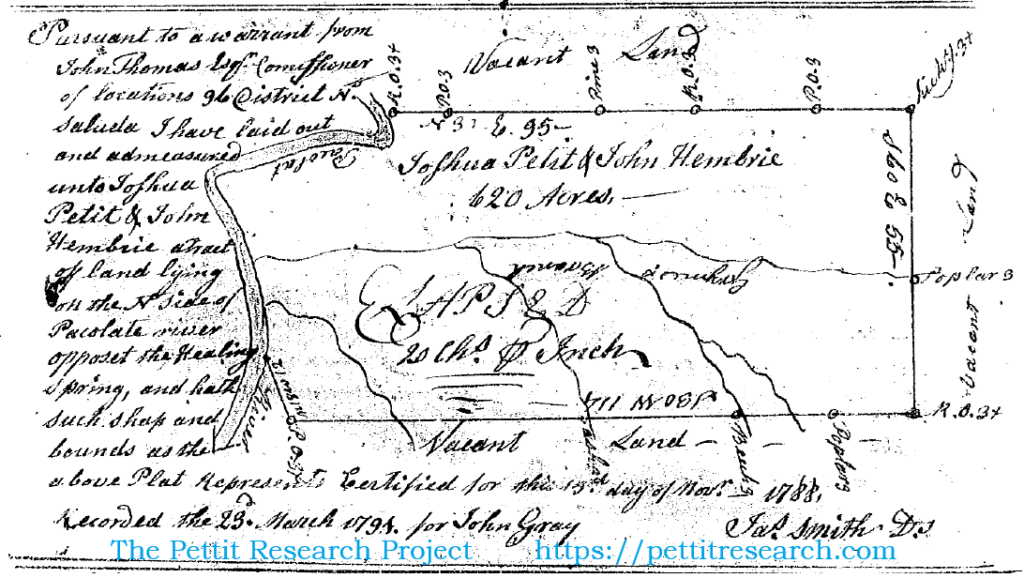 Pursuant to a warrant from
John Thomas Esqr. Comissioner
of locations 96 District No.
Saluda I have laid out
and admeasured
unto Joshua
Petit & John
Hembrie a tract
of land lying
on the N side of
Pacolate river
opposet the Healing
Spring, and hath
such shap and
bounds as the
above Plat Represents Certified for this 13th. day of Novr. 1788.
Recorded the 23d. March 1791. for John Gray
Jas. Smith D.S
Vacant Land
R.O.3+
P.O.3
Pine 3
R.O.3
P.O.3
N 32 E. 95
Joshua Petit & John Hembrie
620 Acres.
S60 E 55
Poplar 3
Vacant Land
R.O.3+
Branch
LAPSED
20 Chs. P Inch
S30 W 114
River
P.O.3+
Vacant Land
Poplar 3
The Pettit Research Project https://pettitresearch.com